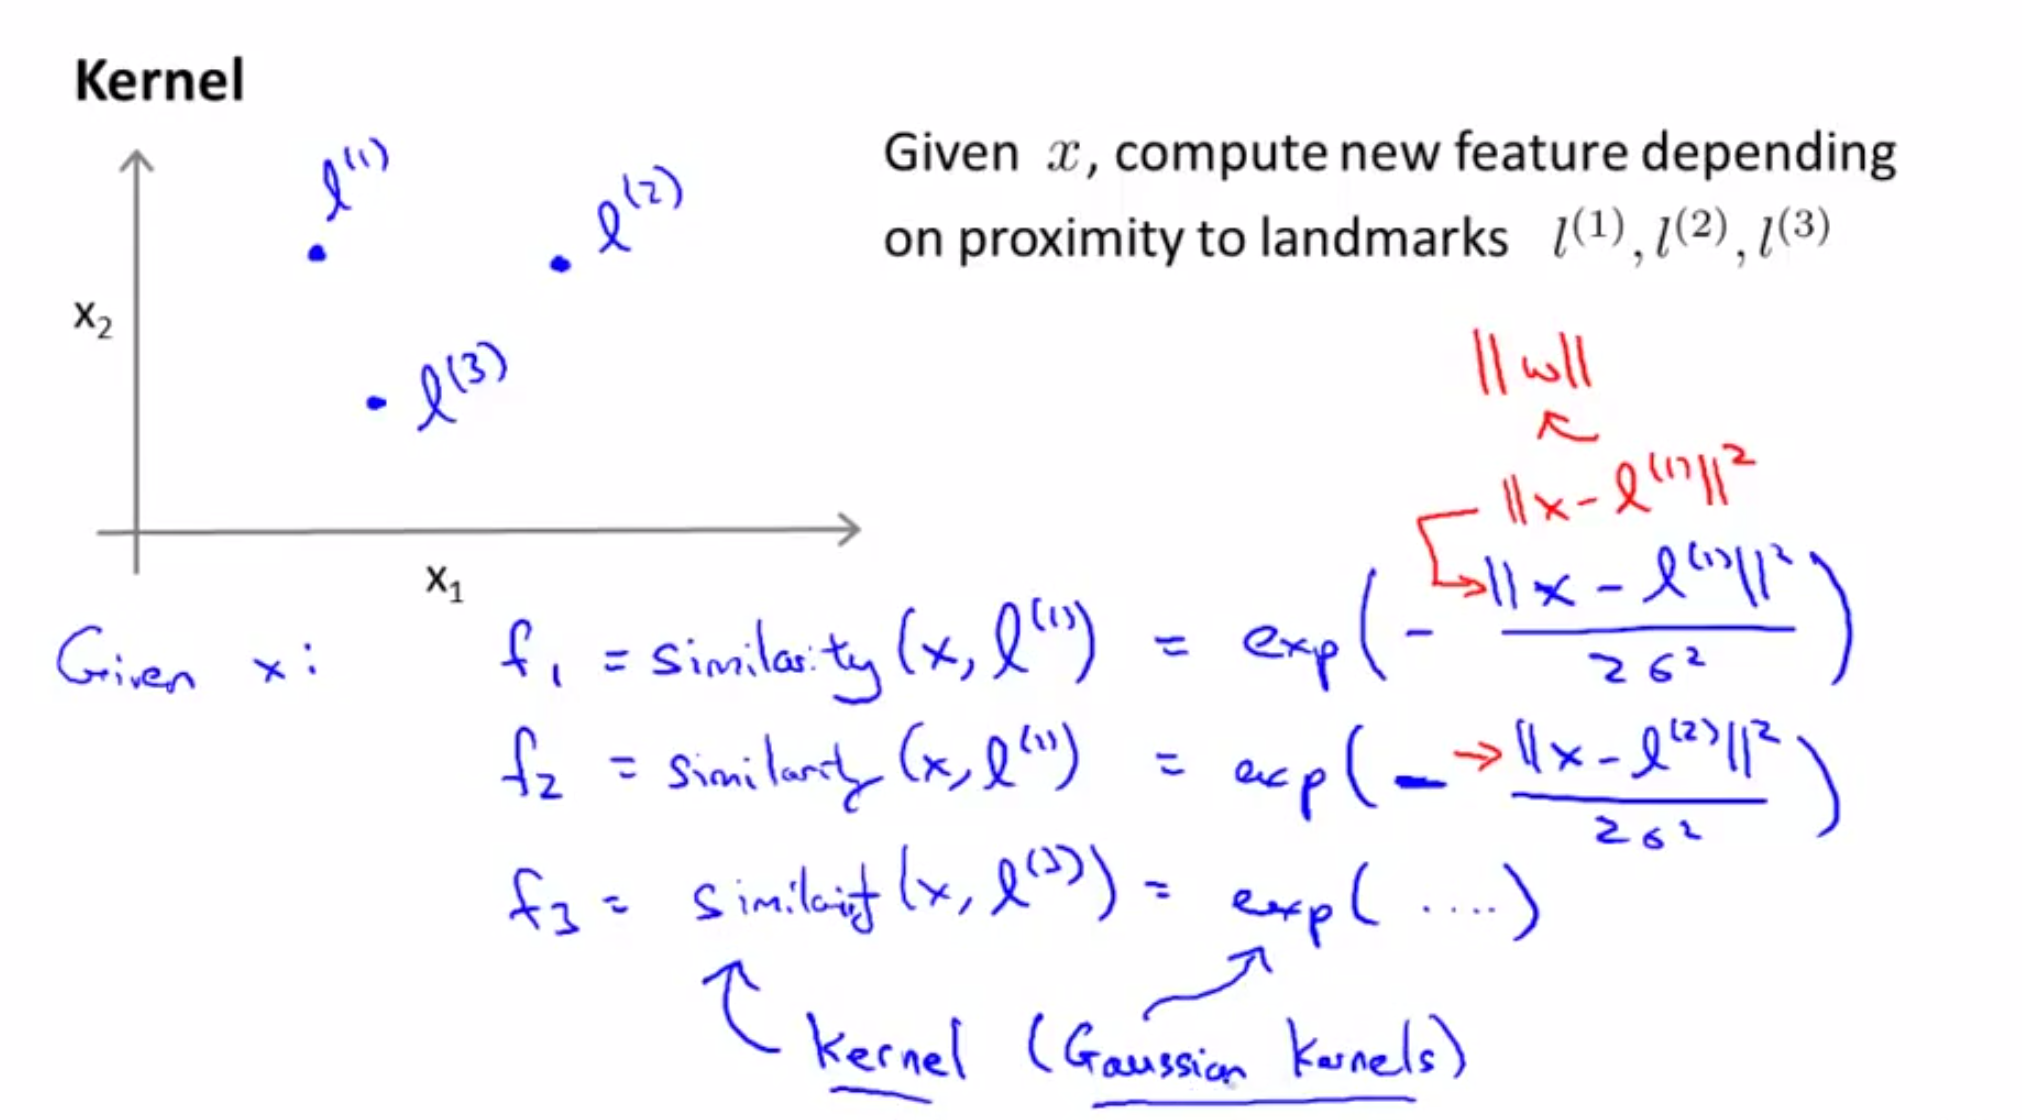 Kernel
l⁽¹⁾
l⁽²⁾
Given x, compute new feature depending
on proximity to landmarks l⁽¹⁾, l⁽²⁾, l⁽³⁾
x₂
l⁽³⁾
||w||
||x - l⁽¹⁾||²
x₁
Given x: f₁ = similarity(x, l⁽¹⁾) = exp(- ||x - l⁽¹⁾||² / 2σ²)
f₂ = similarity(x, l⁽²⁾) = exp(- ||x - l⁽²⁾||² / 2σ²)
f₃ = similarity(x, l⁽³⁾) = exp(....)
Kernel (Gaussian Kernels)